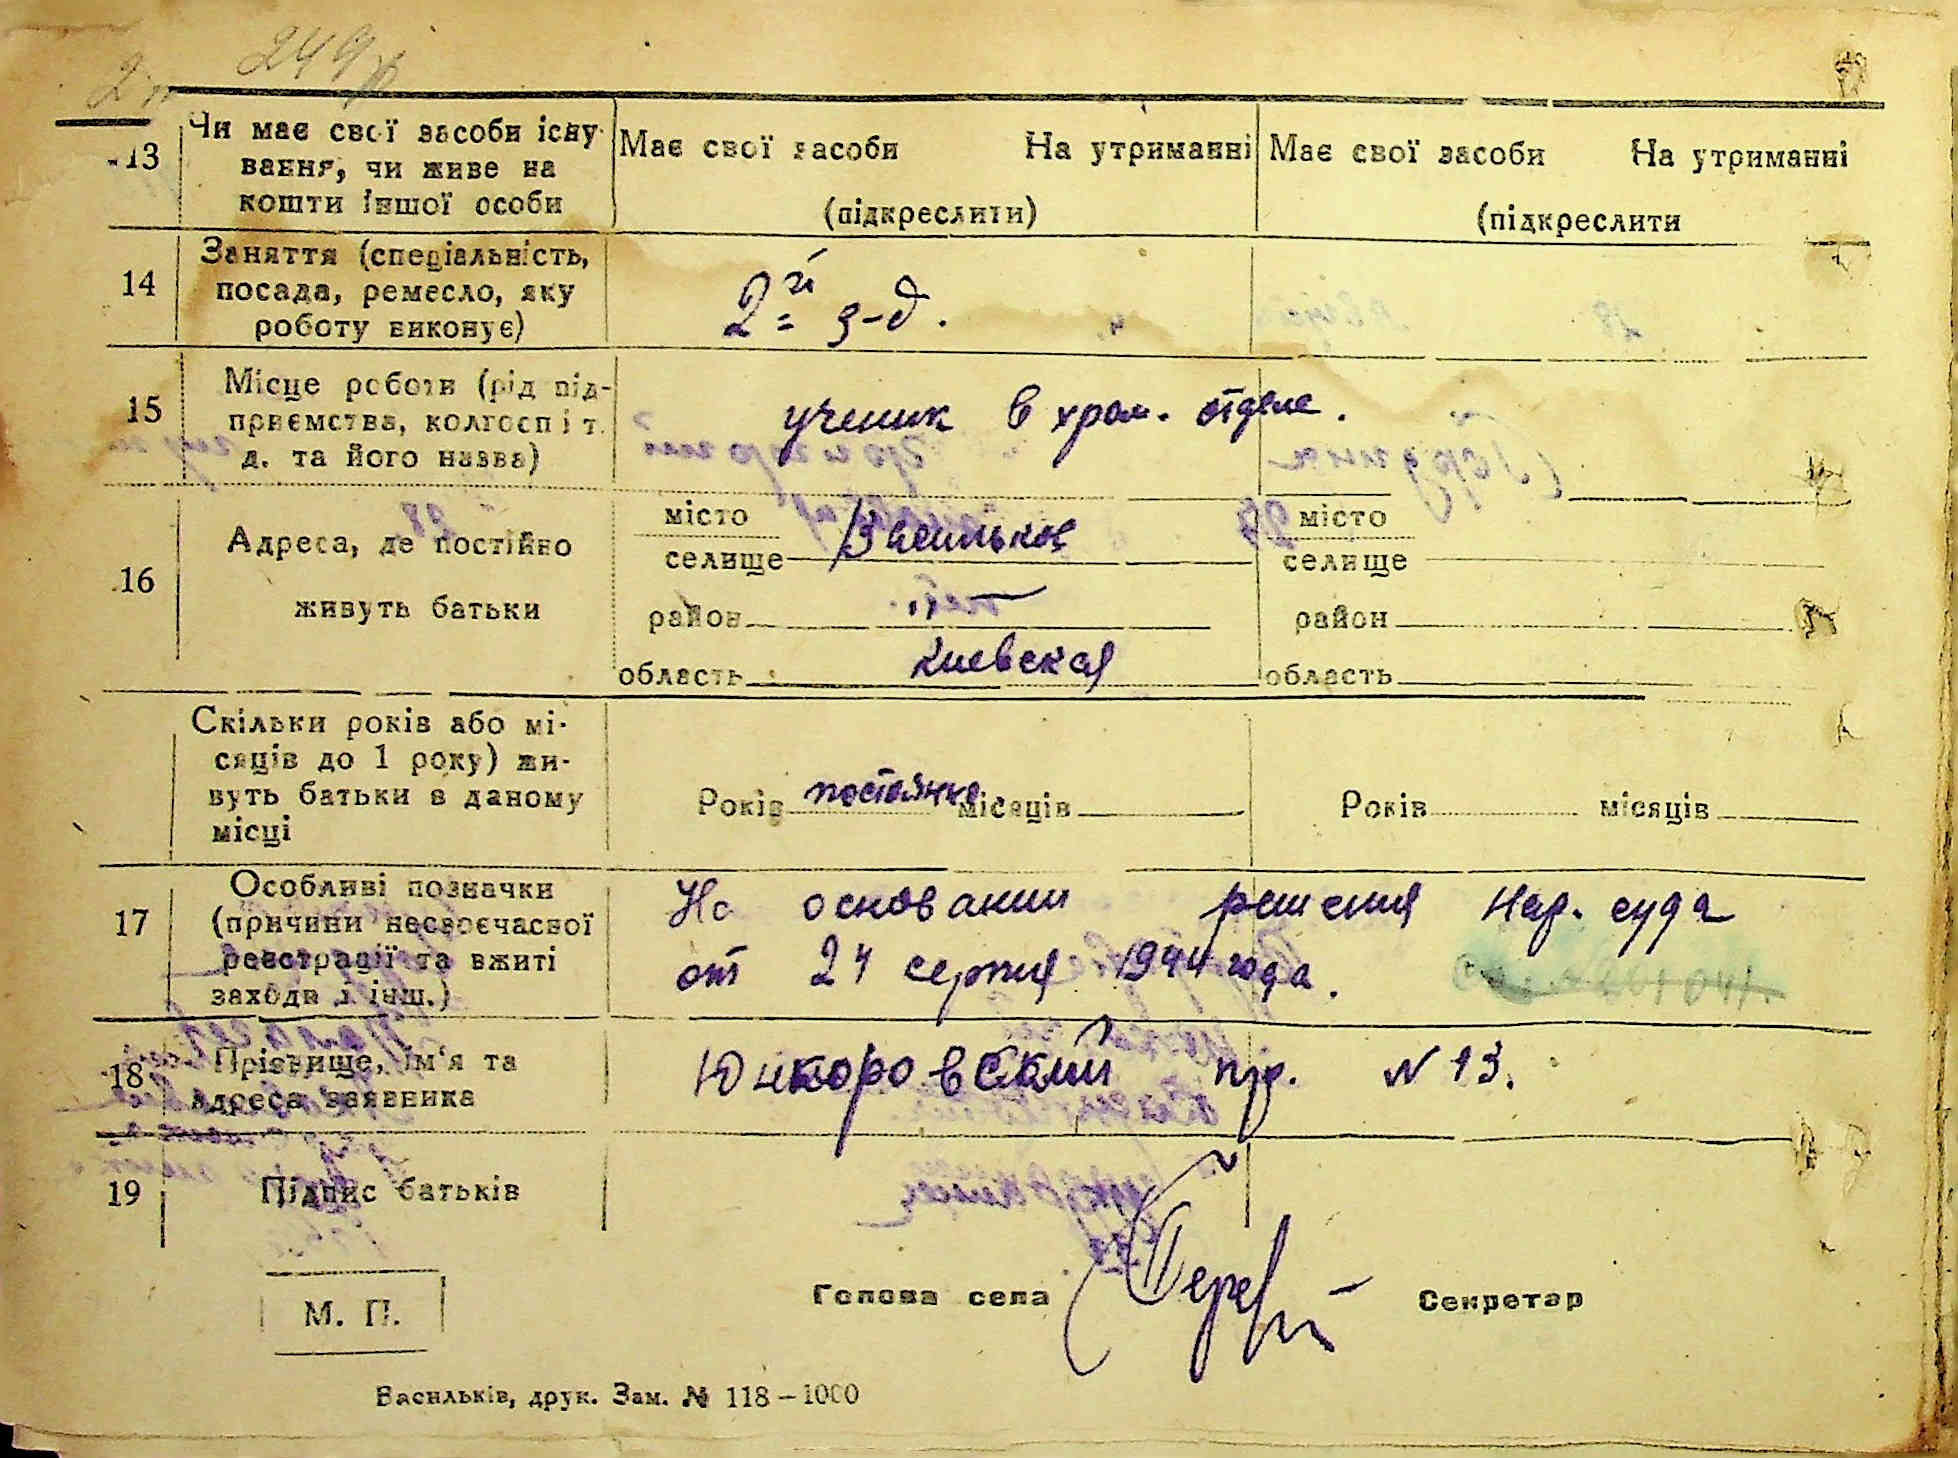 249
13
Чи має свої засоби існу-
вання, чи живе на
кошти іншої особи
Має свої засоби На утриманні
(підкреслити)
Має свої засоби На утриманні
(підкреслити
14
Заняття (спеціальність,
посада, ремесло, яку
роботу виконує)
2й з-д.
15
Місце роботи (рід під-
приємства, колгосп і т.
д. та його назва)
ученик в хром. отделе.
16
Адреса, де постійно
живуть батьки
місто
селище Васильков
район
область Киевская
місто
селище
район
область
Скільки років або мі-
сяців до 1 року) жи-
вуть батьки в даному
місці
Років постоянно місяців
Років місяців
17
Особливі позначки
(причини несвоєчасної
реєстрації та вжиті
заходи і інш.)
На основании решения Нар. суда
от 24 серпня 1944 года.
18
Прізвище, ім'я та
адреса заявника
Юнкоровский пр. N 13.
19
Підпис батьків
М. П.
Голова села
Секретар
Васильків, друк. Зам. № 118-1000